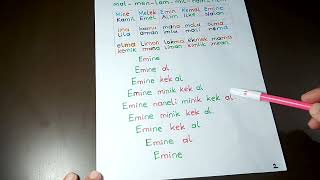 mal - men - lam - mil - nan - nem
Mine Melek Emin Kemal Emine
Kamil Emel Alim İlke Nalan
ima kamu mana mola olma
ula anman imla mali nema
elma liman lokma ekmek mama
kemik mana liman kimlik imkan
Emine
Emine al
Emine kek al
Emine minik kek al
Emine naneli minik kek al
Emine minik kek al.
Emine kek al
Emine al
Emine
2